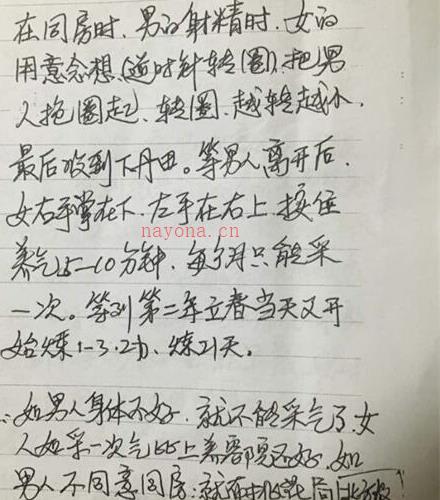 在同房时，男的射精时，女的
用意念想（逆时针转圈），把男
人抱圈起，转圈，越转越小，
最后收到下丹田。等男人离开后，
女右手掌在下，左手在右上，按住
nayona.cn
养气5-10分钟，每个月只能采
一次。等到第二年立春当天又开
始炼1-3，2功，炼21天。
如男人身体不好，就不能采气了，女
人如采一次气比上美容院还好，如
男人不同意同房，就